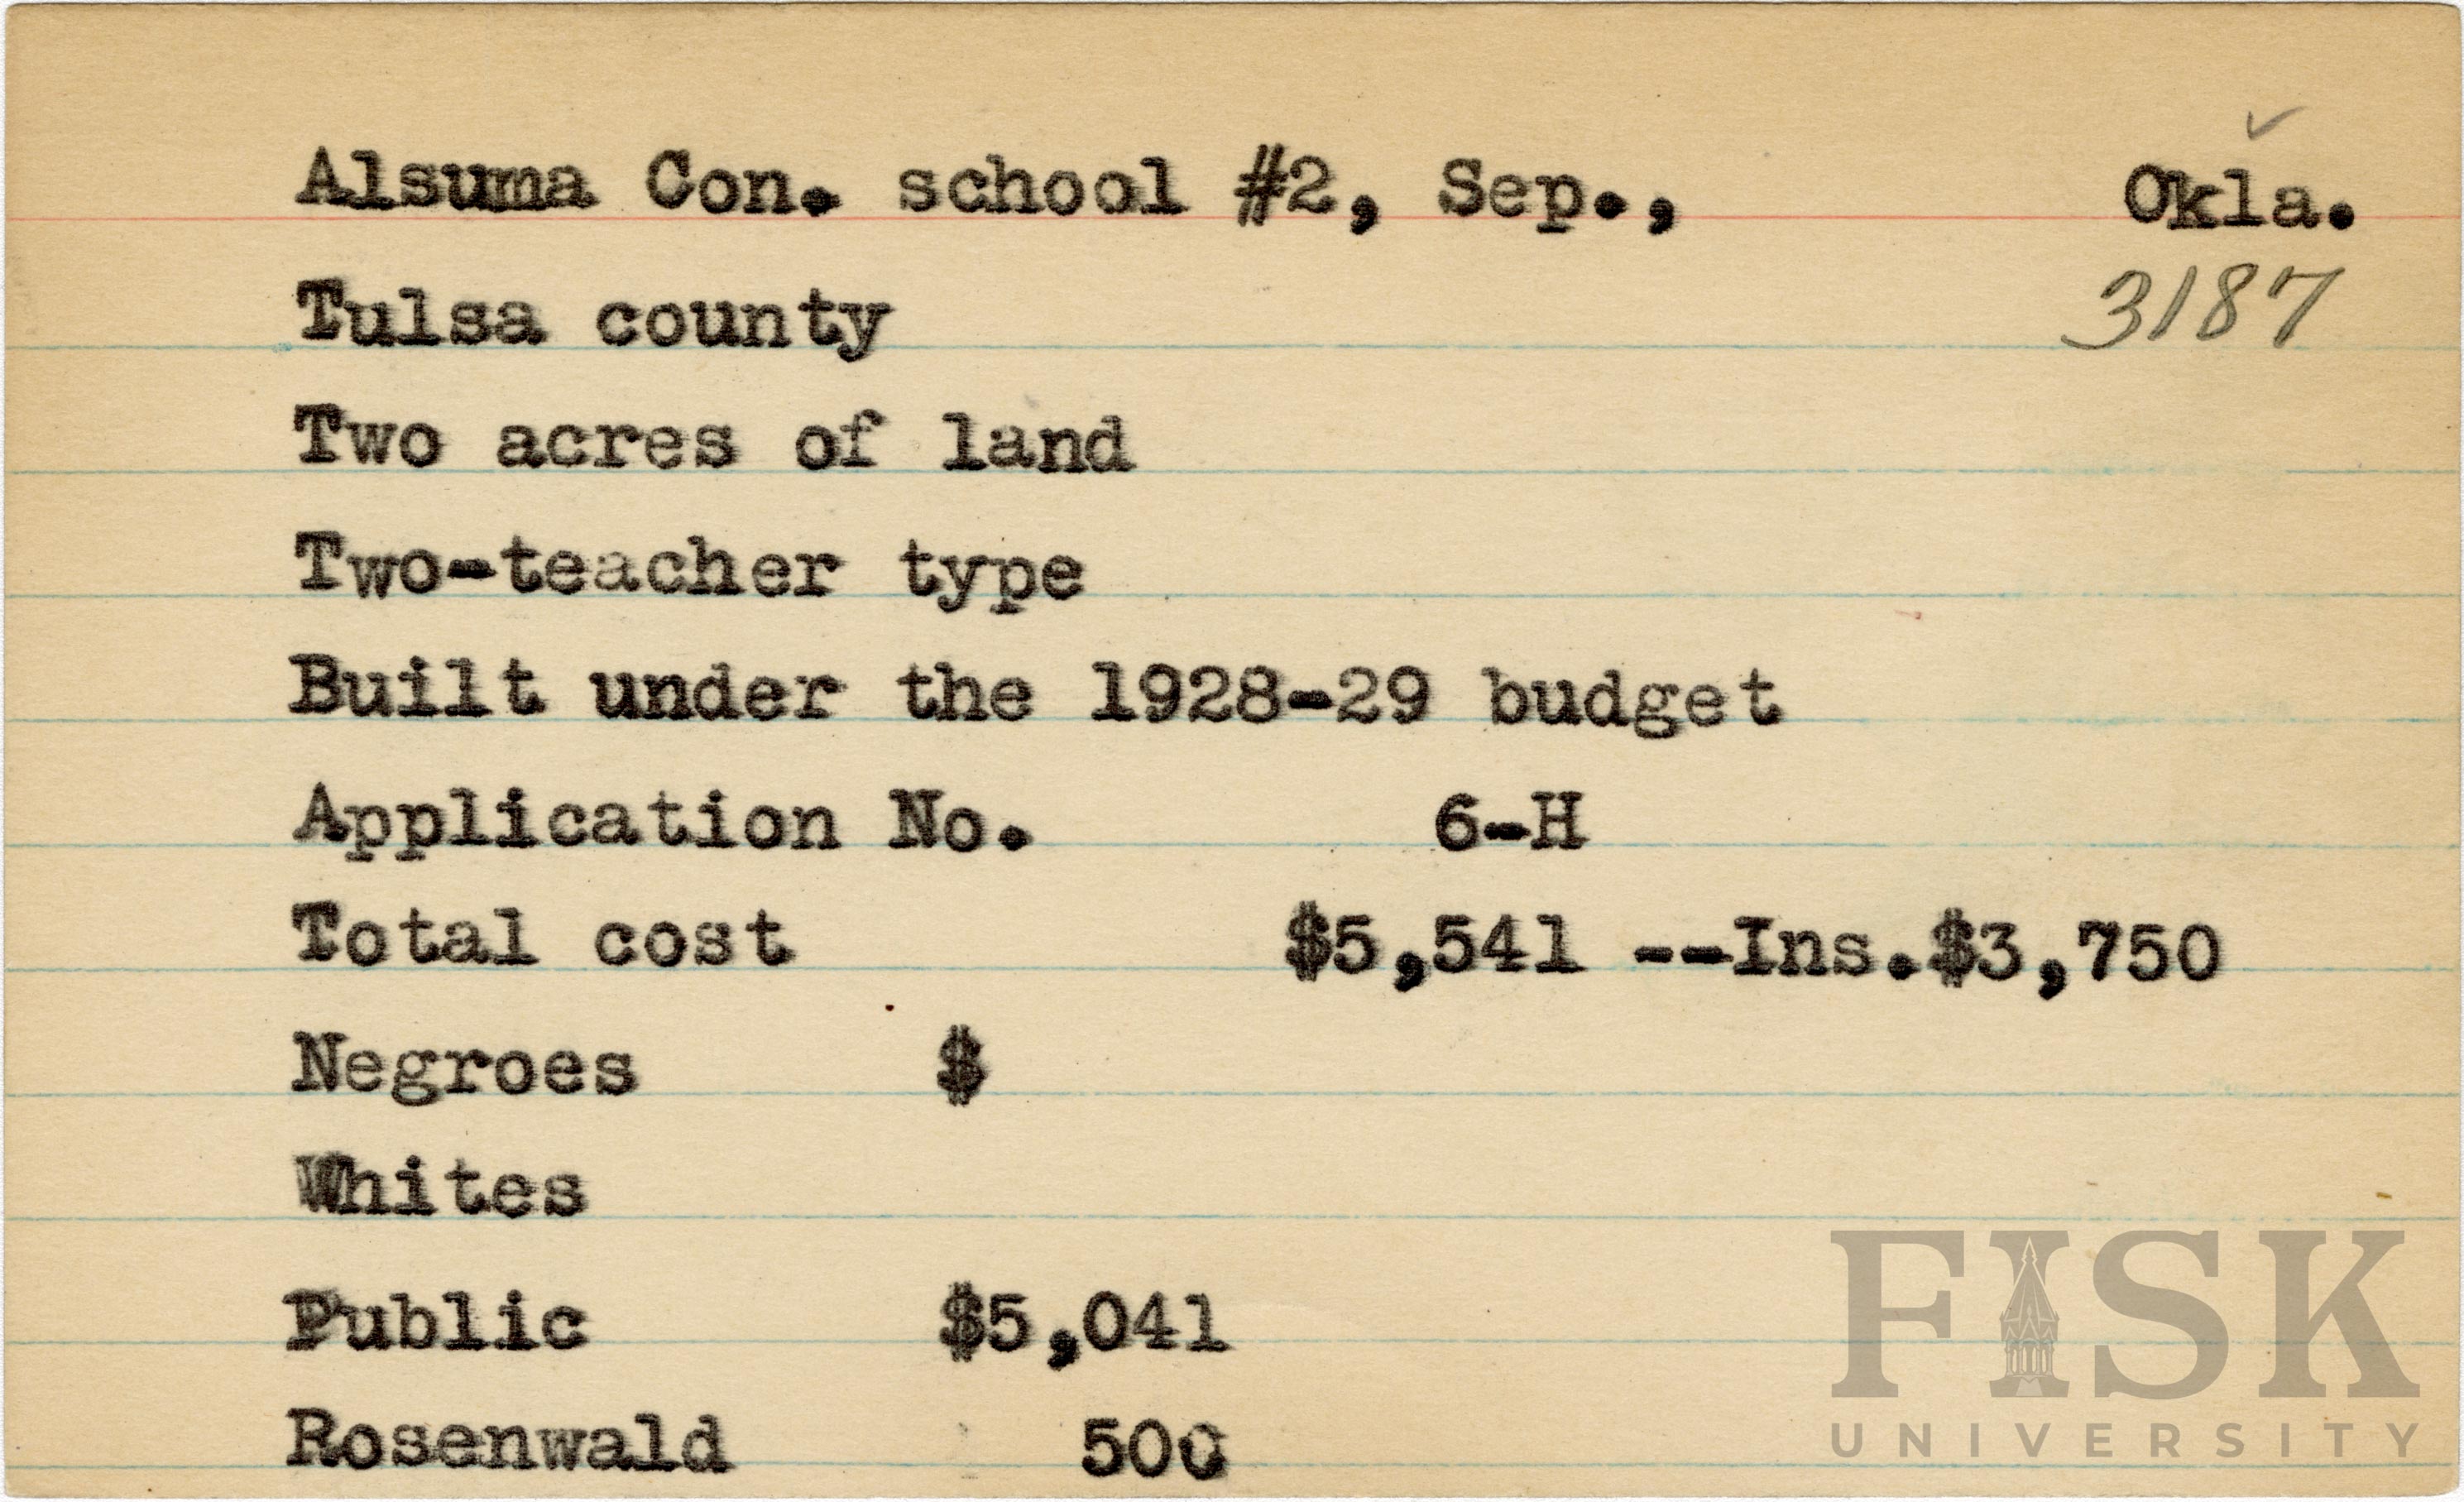 Alsuma Con. school #2, Sep., Okla.
3187
Tulsa county
Two acres of land
Two-teacher type
Built under the 1928-29 budget
Application No. 6-H
Total cost $5,541 --Ins.$3,750
Negroes $
Whites
Public $5,041
Rosenwald 500
FISK
UNIVERSITY